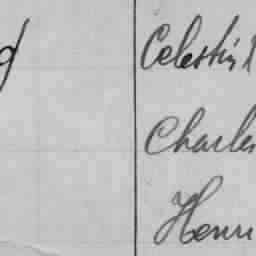 Celestin
Charles
Henri